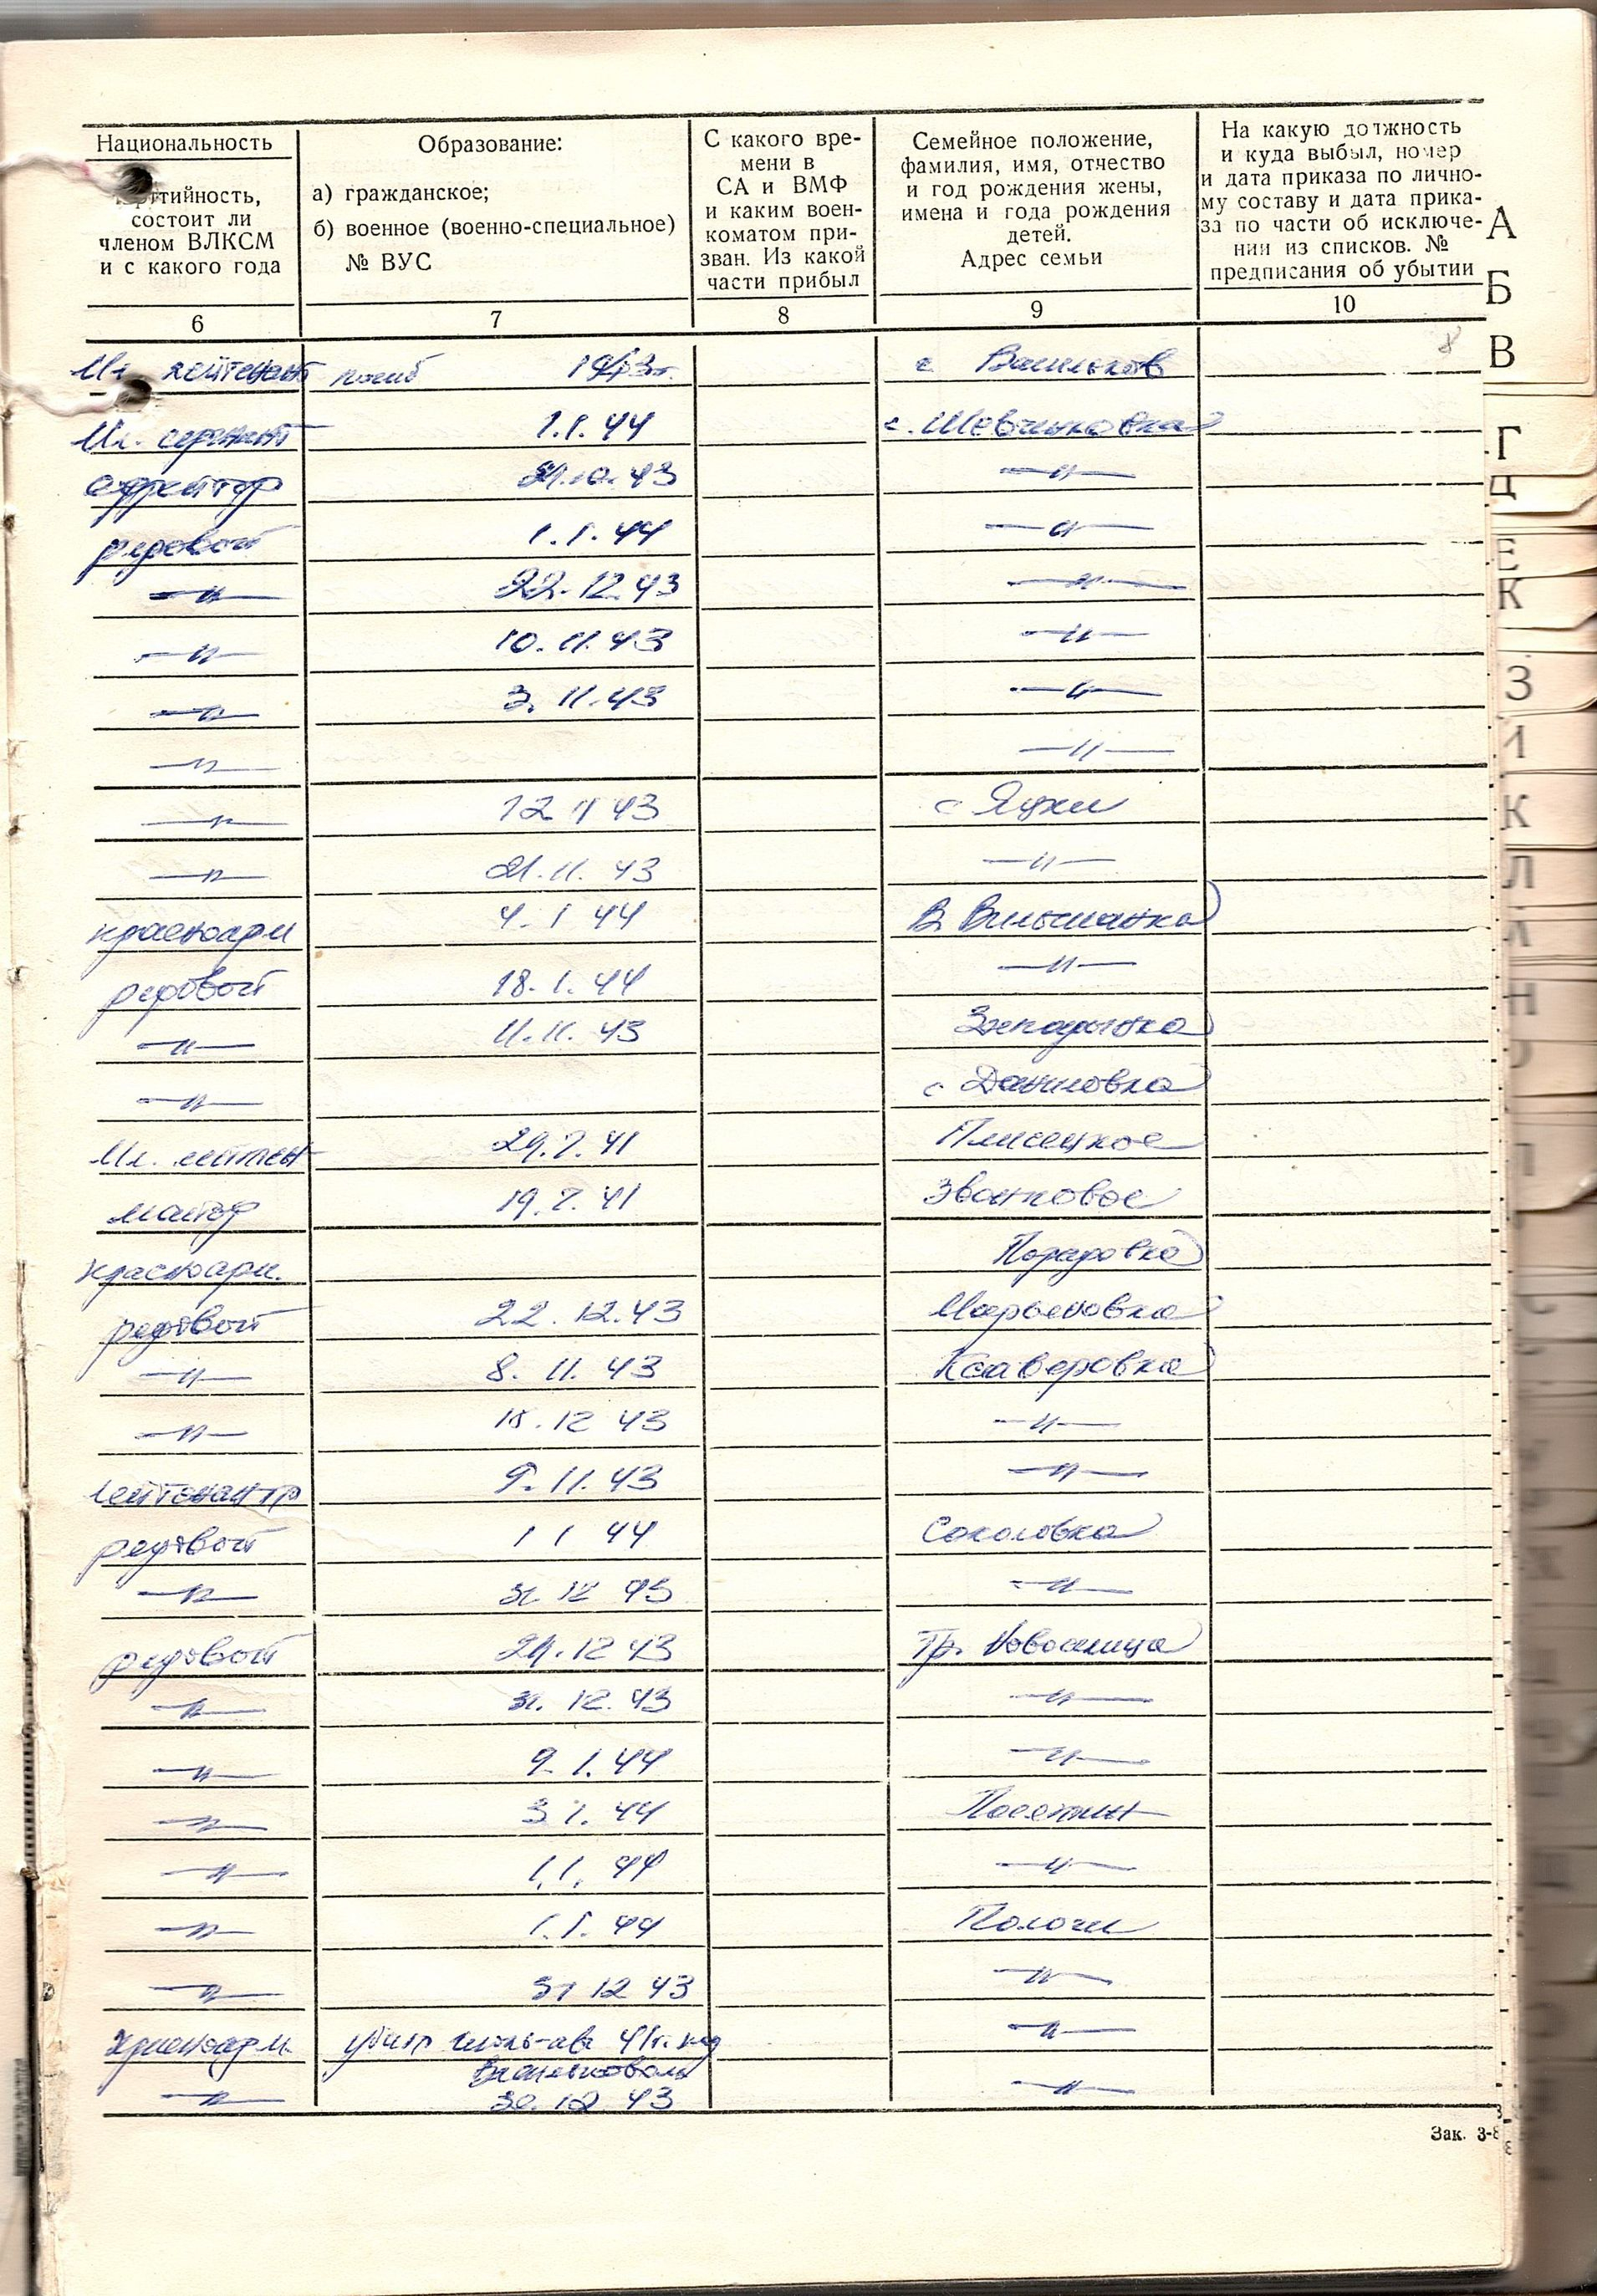 Национальность
тийность,
состоит ли
членом ВЛКСМ
и с какого года
Образование:
а) гражданское;
б) военное (военно-специальное)
№ ВУС
С какого вре-
мени в
СА и ВМФ
и каким воен-
коматом при-
зван. Из какой
части прибыл
Семейное положение,
фамилия, имя, отчество
и год рождения жены,
имена и года рождения
детей.
Адрес семьи
На какую должность
и куда выбыл, номер
и дата приказа по лично-
му составу и дата прика-
за по части об исключе-
нии из списков. №
предписания об убытии
6 7 8 9 10
Мл. лейтенант погиб 1943г. с Васильков
Мл. сержант 1.1.44 с. Шевченковка
ефрейтор 43 —"—
рядовой 1.1.44 —"—
—"— 22.12.43 —"—
—"— 10.11.43 —"—
—"— 3.11.43 —"—
—"— —"—
—"— 12 11 43 с Яцки
—"— 21.11.43 —"—
красноарм 4.1 44 В Вильшанка
рядовой 18.1.44 —"—
—"— 11.11.43
—"— с Даниловка
Мл. лейтен 29.7.41 Плисецкое
майор 19.7.41 Звонковое
красноарм. Порадовка
рядовой 22.12.43 Марьяновка
—"— 8.11.43 Ксаверовка
—"— 12 43 —"—
лейтенант 9.11.43 —"—
рядовой 1 1 44 Соколовка
—"— 31 12 43 —"—
рядовой 12 43 Гр. Новоселица
—"— 31.12.43 —"—
—"— 9.1.44 —"—
—"— 3 1.44
—"— 1.1.44 —"—
—"— 1.1.44 Пологи
—"— 31 12 43 —"—
красноарм. убит июль-авг 41г. под —"—
Васильковом
—"— 30.12 43 —"—
Зак. 3-8
8
А
Б
В
Г
Д
Е
К
З
И
К
Л
М
Н
О
П